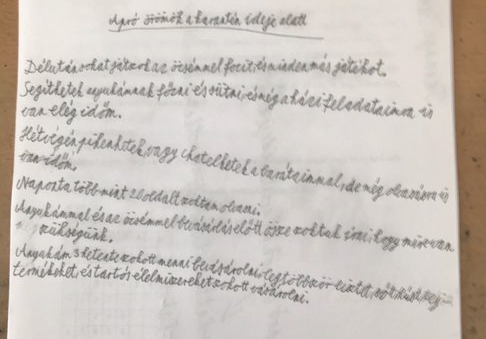 Apró örömök a karantén ideje alatt
Délután sokat játszok az öcsémmel focit, és minden más játékot.
Segíthetek anyukámnak főzni és sütni, és még a házi feladataimra is
van elég időm.
Hétvégén pihenhetek, vagy chatelhetek a barátaimmal, de még olvasásra is
van időm.
Naponta több mint 20 oldalt szoktam olvasni.
Anyukámmal és az öcsémmel bevásárlás előtt össze szoktuk írni, hogy mire van
szükségünk.
Anyukám 3 hetente szokott menni bevásárolni, legtöbbször lisztet,
termékeket, és tartós élelmiszereket szokott vásárolni.